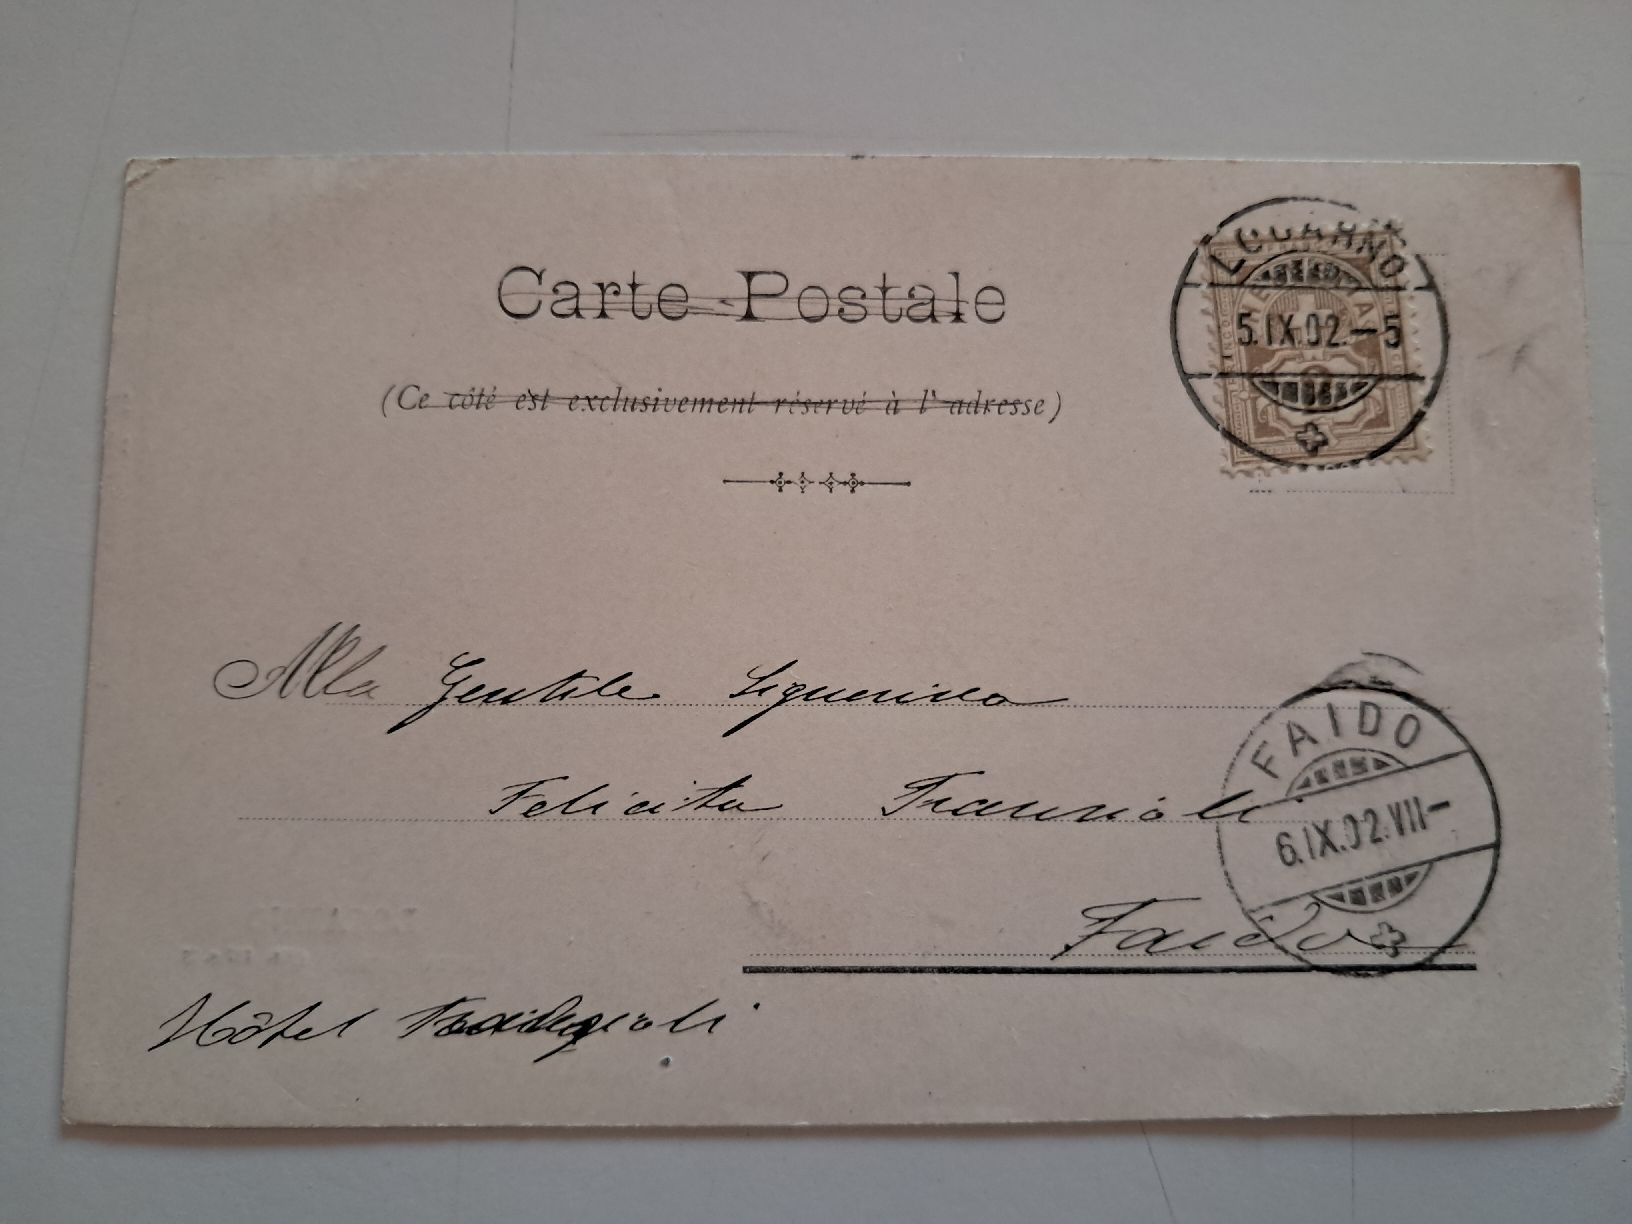 Carte Postale
(Ce côté est exclusivement réservé à l'adresse)
LOCARNO
5.IX.02.-5
Alla Gentile Signorina
Felicita
FAIDO
6.IX.02.VII-
Faido
Hôtel